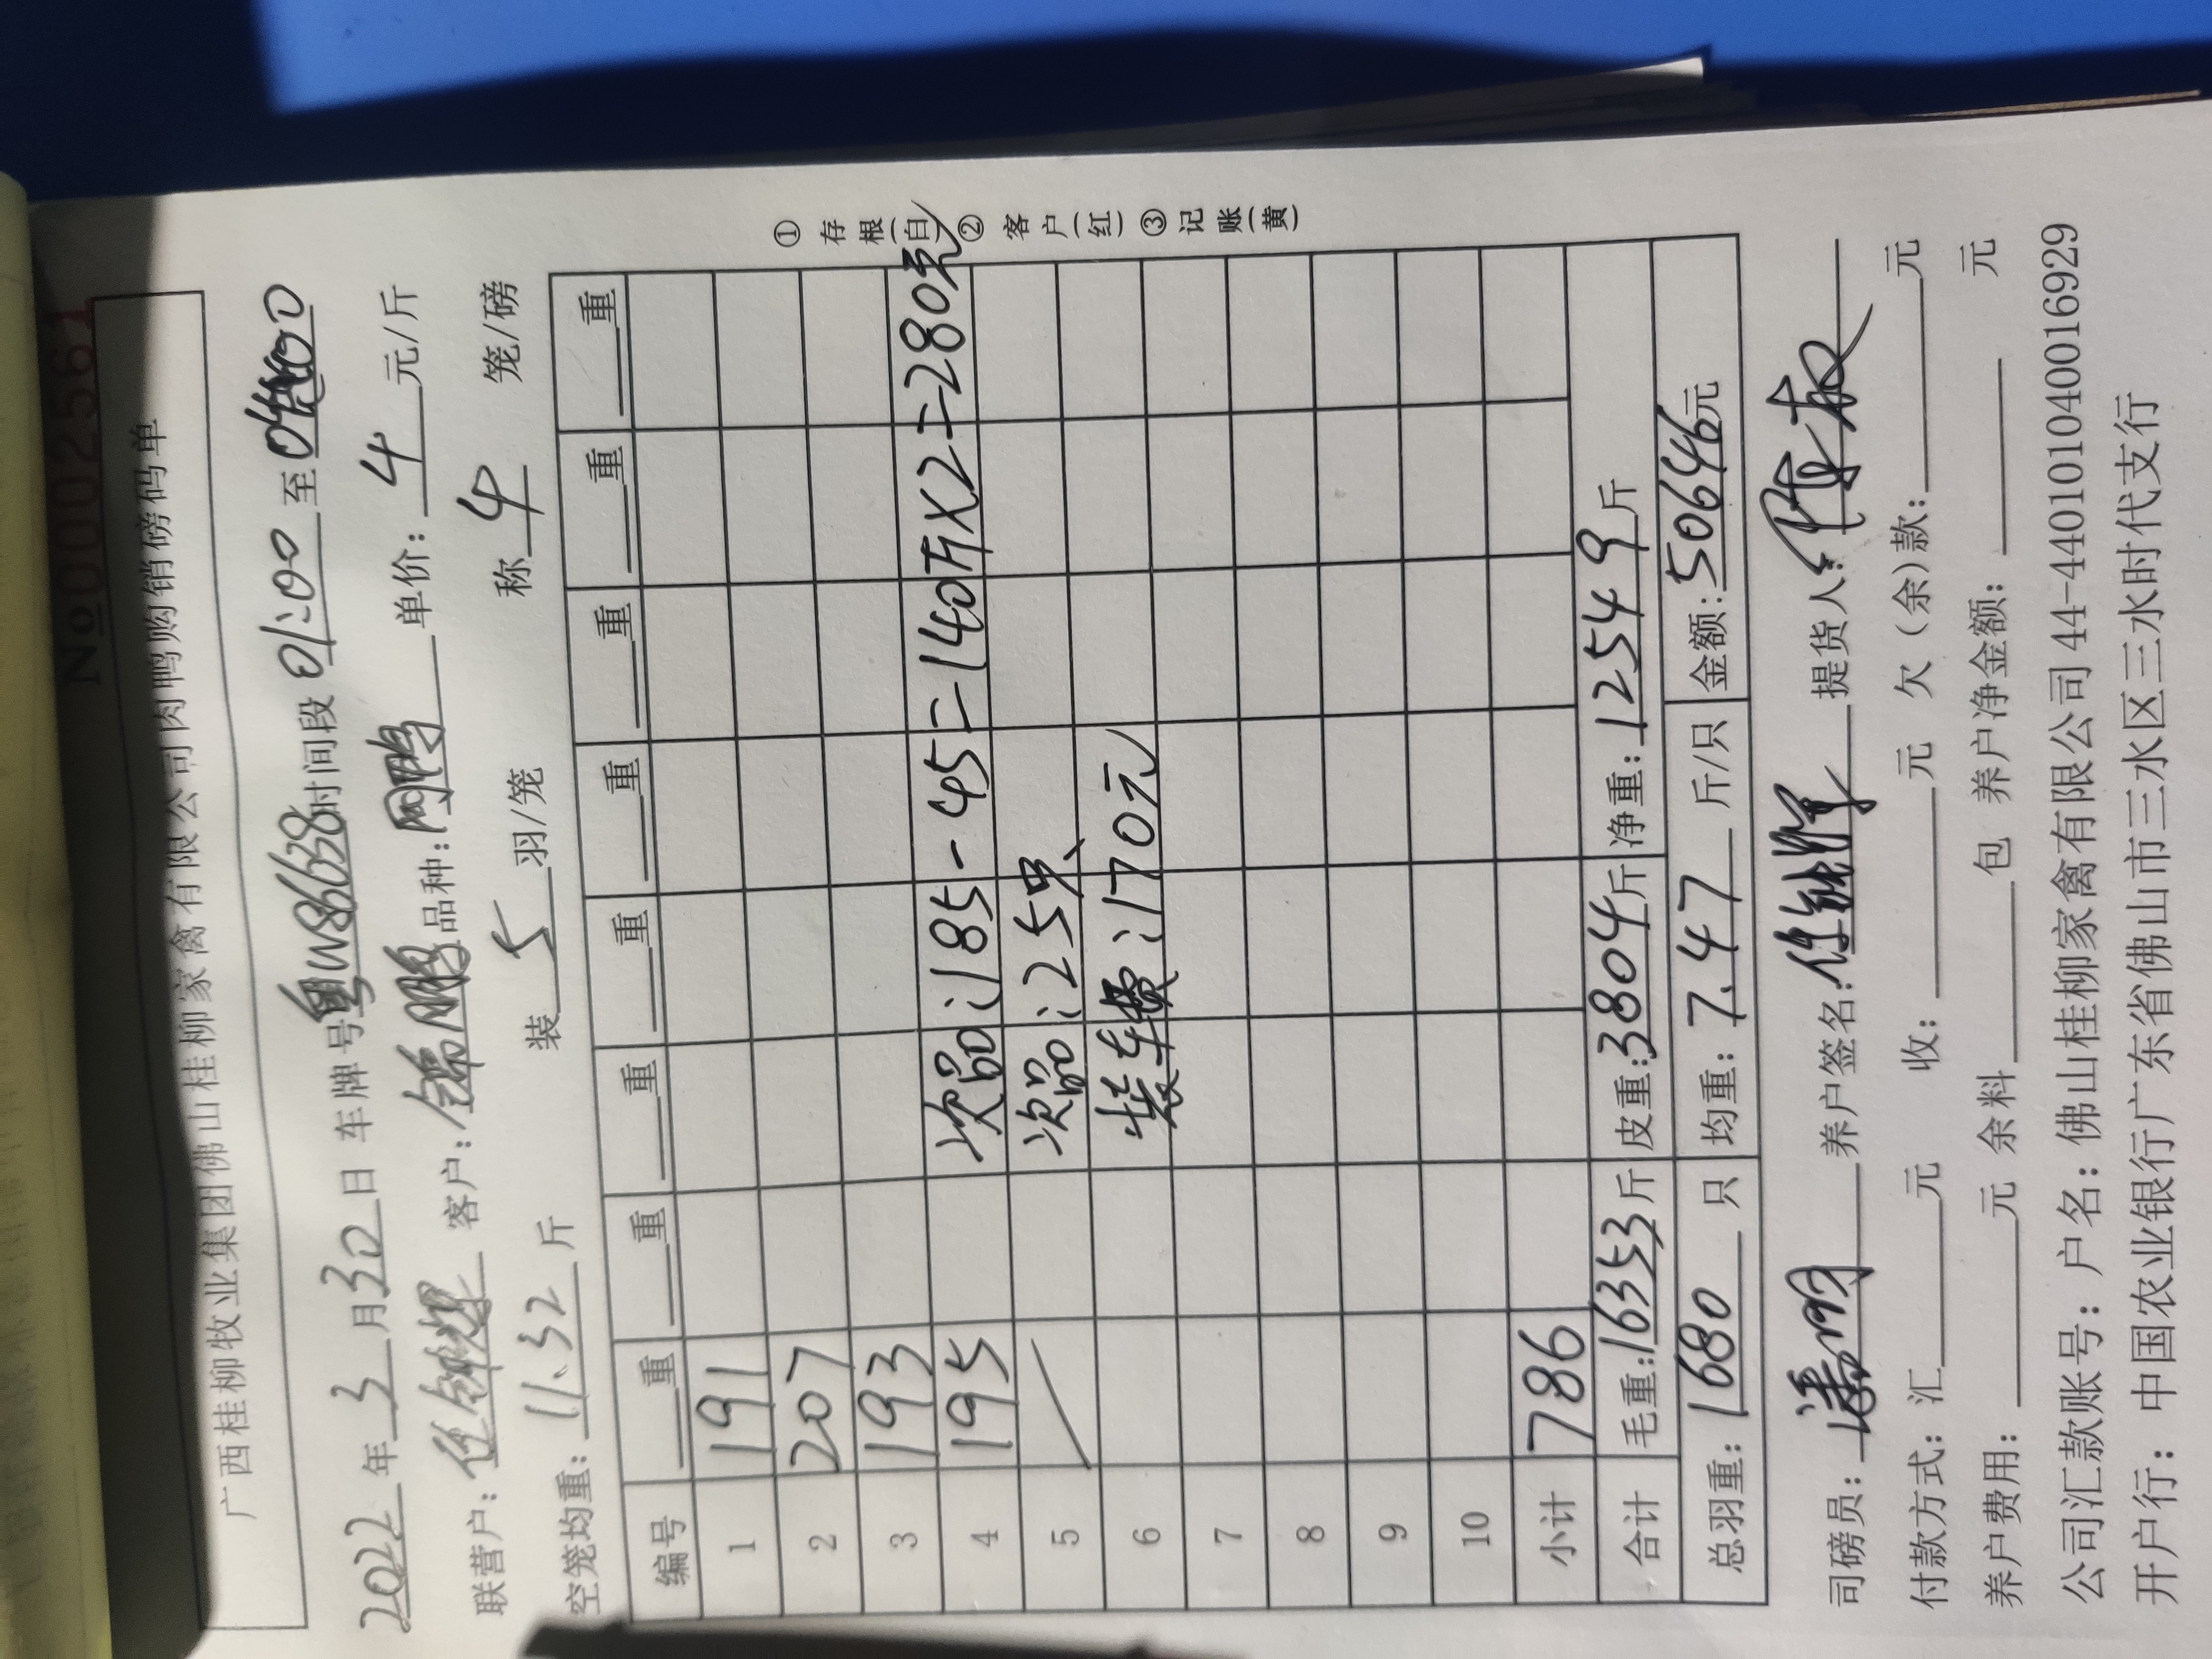 №0002561
广西桂柳牧业集团佛山桂柳家禽有限公司肉鸭购销磅码单
2022年3月30日 车牌号粤W86638时间段01:00至
联营户: 客户:锦鹏 品种:网鸭 单价:4元/斤
空笼均重:11.32斤 装5羽/笼 称4笼/磅
编号 重 重 重 重 重 重 重 重
1 191
2 207
3 193
4 195 次品:185-45=140斤×2=280元
5 次品:25只
6 装车费:170元
7
8
9
10
小计 786
合计 毛重:16353斤 皮重:3804斤 净重:12549斤
总羽重:1680只 均重:7.47斤/只 金额:50646元
①存根(白)②客户(红)③记账(黄)
司磅员: 养户签名: 提货人:
付款方式:汇 元 收: 元 欠(余)款: 元
养户费用: 元 余料 包 养户净金额: 元
公司汇款账号:户名:佛山桂柳家禽有限公司44-440101040016929
开户行:中国农业银行广东省佛山市三水区三水时代支行